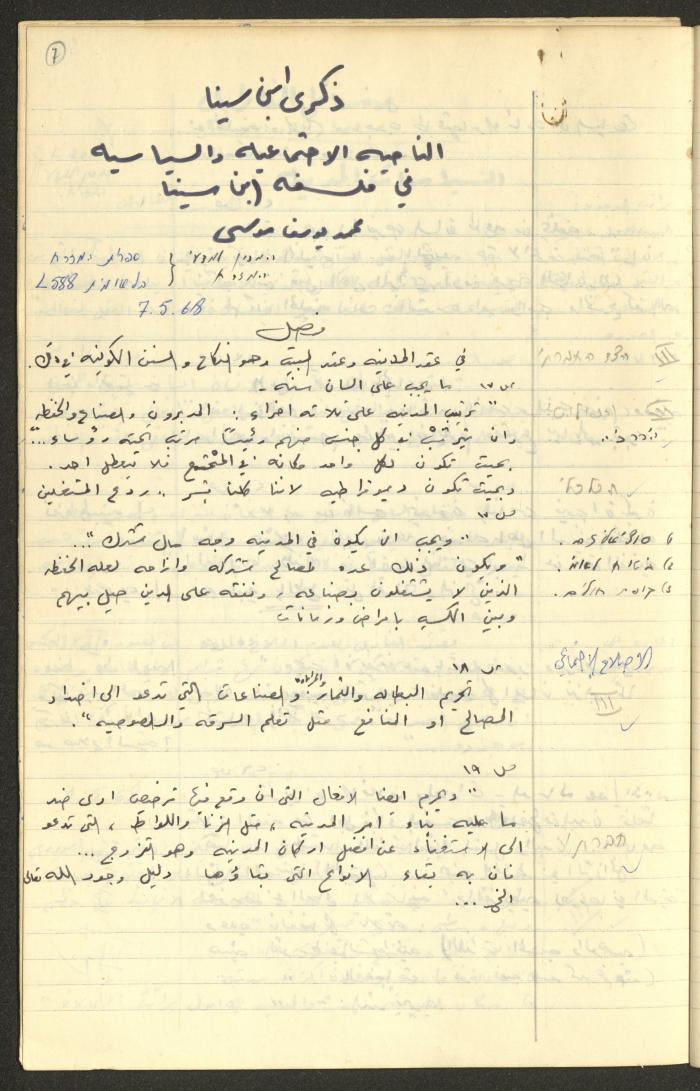 7
ذكرى ابن سينا
الناحيه الاجتماعيه والسياسيه
في فلسفه ابن سينا
محمد يوسف موسى
המכון למדעי } ספרית המזרח
המזרח } הלאומית L588
7.5.68
فصل
III
في عقد المدينه وعقد البيت وهو النكاح والسنن الكونيه في ذلك.
ص ١٣ ما يجب على السان سنه -
"ترتيب المدنيه على ثلاثه اجزاء: المدبرون والصناع والحفظه
وان يترتب في كل جنس منهم رئيساً مرتب تحته رؤساء ..."
بحيث تكون لكل واحد مكانه في المجتمع فلا يتعطل احد.
وبحيث تكون ديموقراطيه لاننا كلنا بشر ..
ص ١٧
"ويجب ان يكون في المدينه وجه مال مشترك "...
"ويكون ذلك عده لمصالح مشتركه وازاحه لعله الحفظه
الذين لا يشتغلون بصناعه، ونفقه على الذين حيل بينهم
وبين الكسب بامراض وزمانات
الاصلاح الاجتماعي
III
ص ١٨
تحريم البطاله والقمار و"المراباه" والصناعات التي تدعو الى اضداد
المصالح او المنافع مثل تعلم السرقه واللصوصيه".
ص ١٩
"ويحرم ايضا الافعال التي ان وقع فيها ترخيص ادى ضد
ما عليه بناء امر المدينه، مثل الزنا واللواط، التي تدعو
الى الاستغناء عن افضل اركان المدينه وهو التزوج ...
فان به بقاء الانواع التي بقاؤها دليل وجود الله تعالى
الخ ...